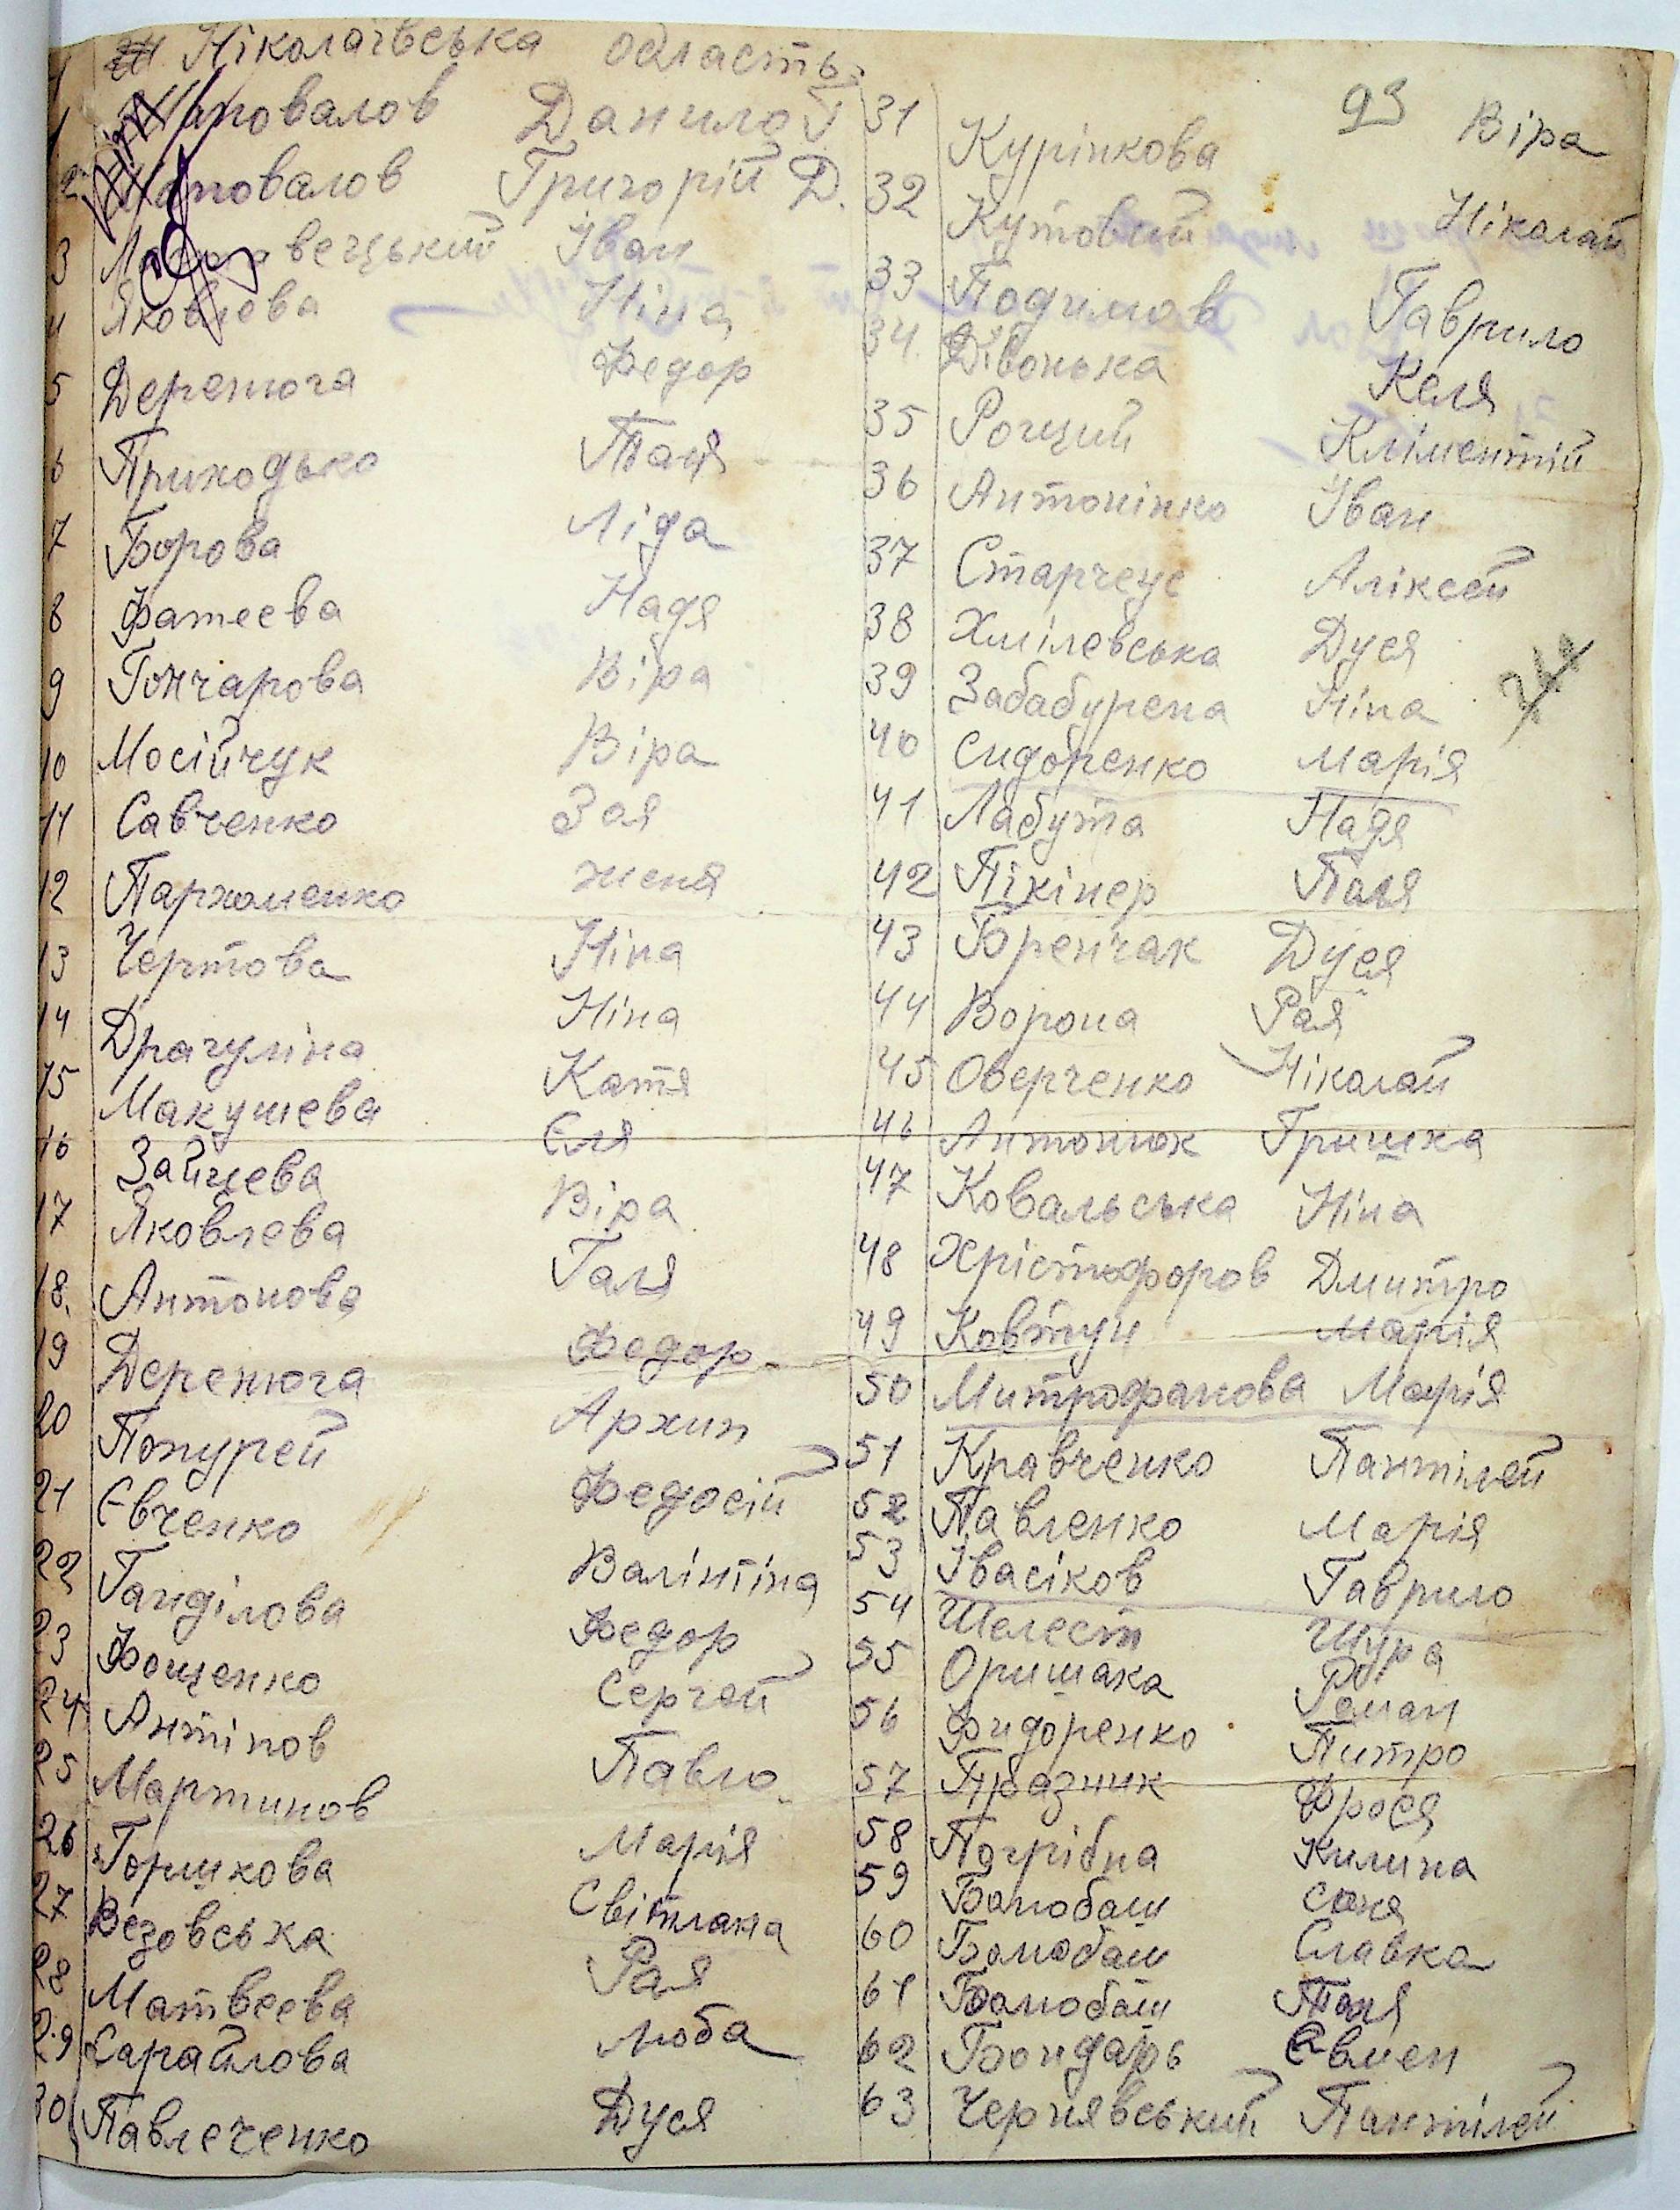 Ніколаївська область
1 Шаповалов Данило Г
2 Шаповалов Григорій Д.
3 вецький Іван
4 Яковлева Ніна
5 Деренюга Федор
6 Приходько Таня
7 Борова Ліда
8 Фатеева Надя
9 Гончарова Віра
10 Мосійчук Віра
11 Савченко Зоя
12 Пархоменко женя
13 Чертова Ніна
14 Драгуліна Ніна
15 Макушева Катя
16 Зайцева Еля
17 Яковлева Віра
18. Антонова Галя
19 Деренюга Федор
20 Попурей Архип
21 Євченко Федосій
22 Ганділова Валінтіна
23 Фощенко Федор
24 Антіпов Сергей
25 Мартинов Павло
26 Горшкова Марія
27 Везовська Світлана
28 Матвеева Рая
29 Сарайлова Люба
30 Павлеченко Дуся
93
31 Курінкова Віра
32 Кутовий Ніколай
33 Подимов Гаврило
34. Дівонька Келя
35 Рощий Кліментій
36 Антонінко Іван
37 Старчеус Аліксей
38 Хмілевська Дуся
39 Забабурена Ніна
40 Сидоренко Марія
41 Лабута Надя
42 Пікінер Поля
43 Бренчак Дуся
44 Ворона Рая
45 Оверченко Ніколай
46 Антонюк Гришка
47 Ковальська Ніна
48 Хрістофоров Дмитро
49 Ковтун Марія
50 Митрофанова Марія
51 Кравченко Пантілей
52 Павленко Марія
53 Івасіков Гаврило
54 Шелест Шура
55 Оришака Роман
56 Фидоренко Питро
57 Празник Фрося
58 Погрібна Килина
59 Бомобаш Соня
60 Бомобаш Славка
61 Бомобаш Толя
62 Бондарь Євмен
63 Чернявський Пантілей